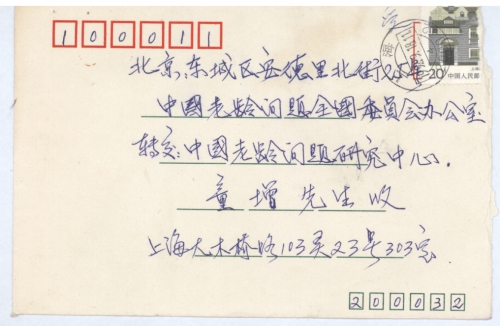 100011
北京,东城区安德里北街25号
中國老龄问题全國委員会办公室
转交:中國老龄问题研究中心.
童增先生收
上海大木桥路103弄23号303室.
200032
20 中国人民邮政
上海